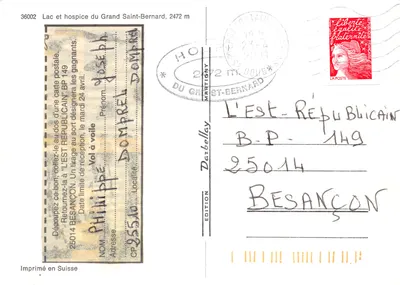 36002 Lac et hospice du Grand Saint-Bernard. 2472 m
Découpez ce bon, collez-le au dos d'une carte postale.
Retournez-la à "L'EST RÉPUBLICAIN" BP 149
25014 BESANÇON. Un tirage au sort désignera les gagnants.
Date limite de réception, le mardi 24 avril.
Vol à voile
NOM PHILIPPE Prénom JOSEPH
Adresse DOMPREL DOMPREL
CP 25510 Localité
Imprimé en Suisse
EDITION Darbellay MARTIGNY
HO
2472 m
DU GR-ST-BERNARD
Liberté
égalité
fraternité
L'EST-RÉPUBLICAIN
B.P- 149
25014
BESANÇON